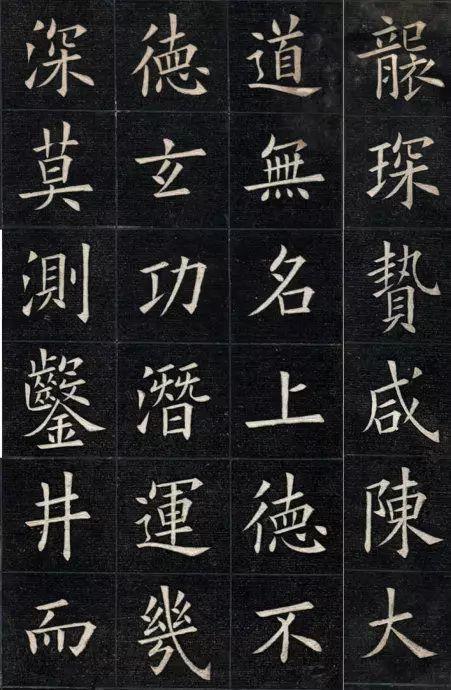 襲琛贄咸陳大
道無名上徳不
徳玄功潛運幾
深莫測鑿井而